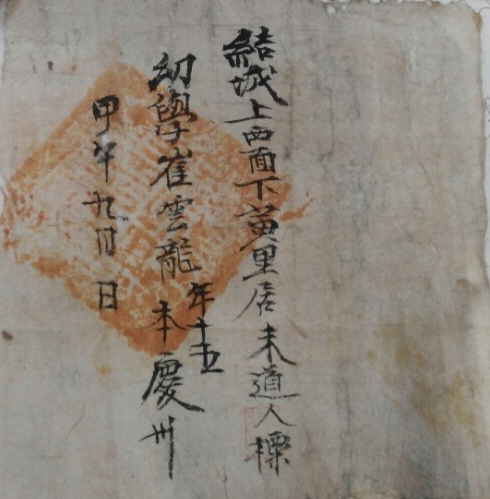 結城上西面下黃里居未道人標
幼學崔雲龍年十五本慶州
甲午九月 日